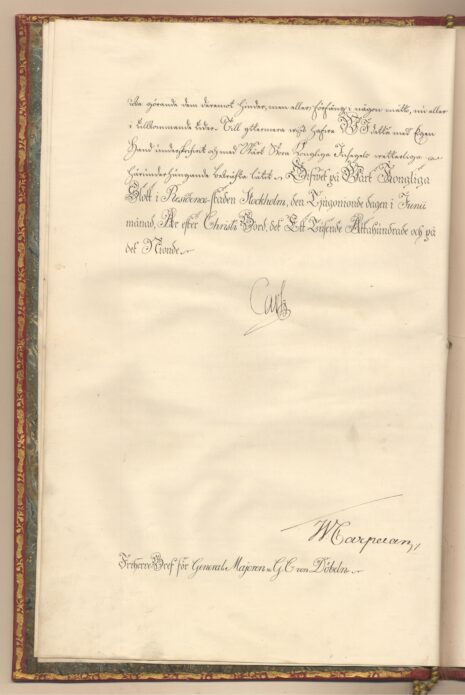 icke görande dem däremot hinder, men eller förfång i någon måtto, nu eller
i tillkommande tider. Till yttermera visso hafve WI detta med Egen
Hand underskrifvit och med Wårt Stora Kongliga Insegels vetterliga
härunderhängande bekräfta låtit. Gifvet på Wårt Kongliga
Slott i Residence-staden Stockholm, den Tjugonionde dagen i Junii
månad, År efter Christi Börd, det Ett Tusende Åttahundrade och på
det Nionde.
Carl
Friherre-Bref för General Majoren G. C. von Döbeln.